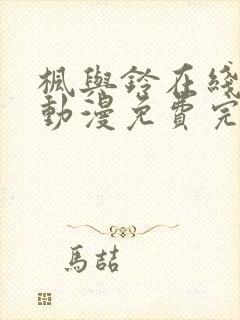 楓與鈴在綫
動漫免費完
馬喆